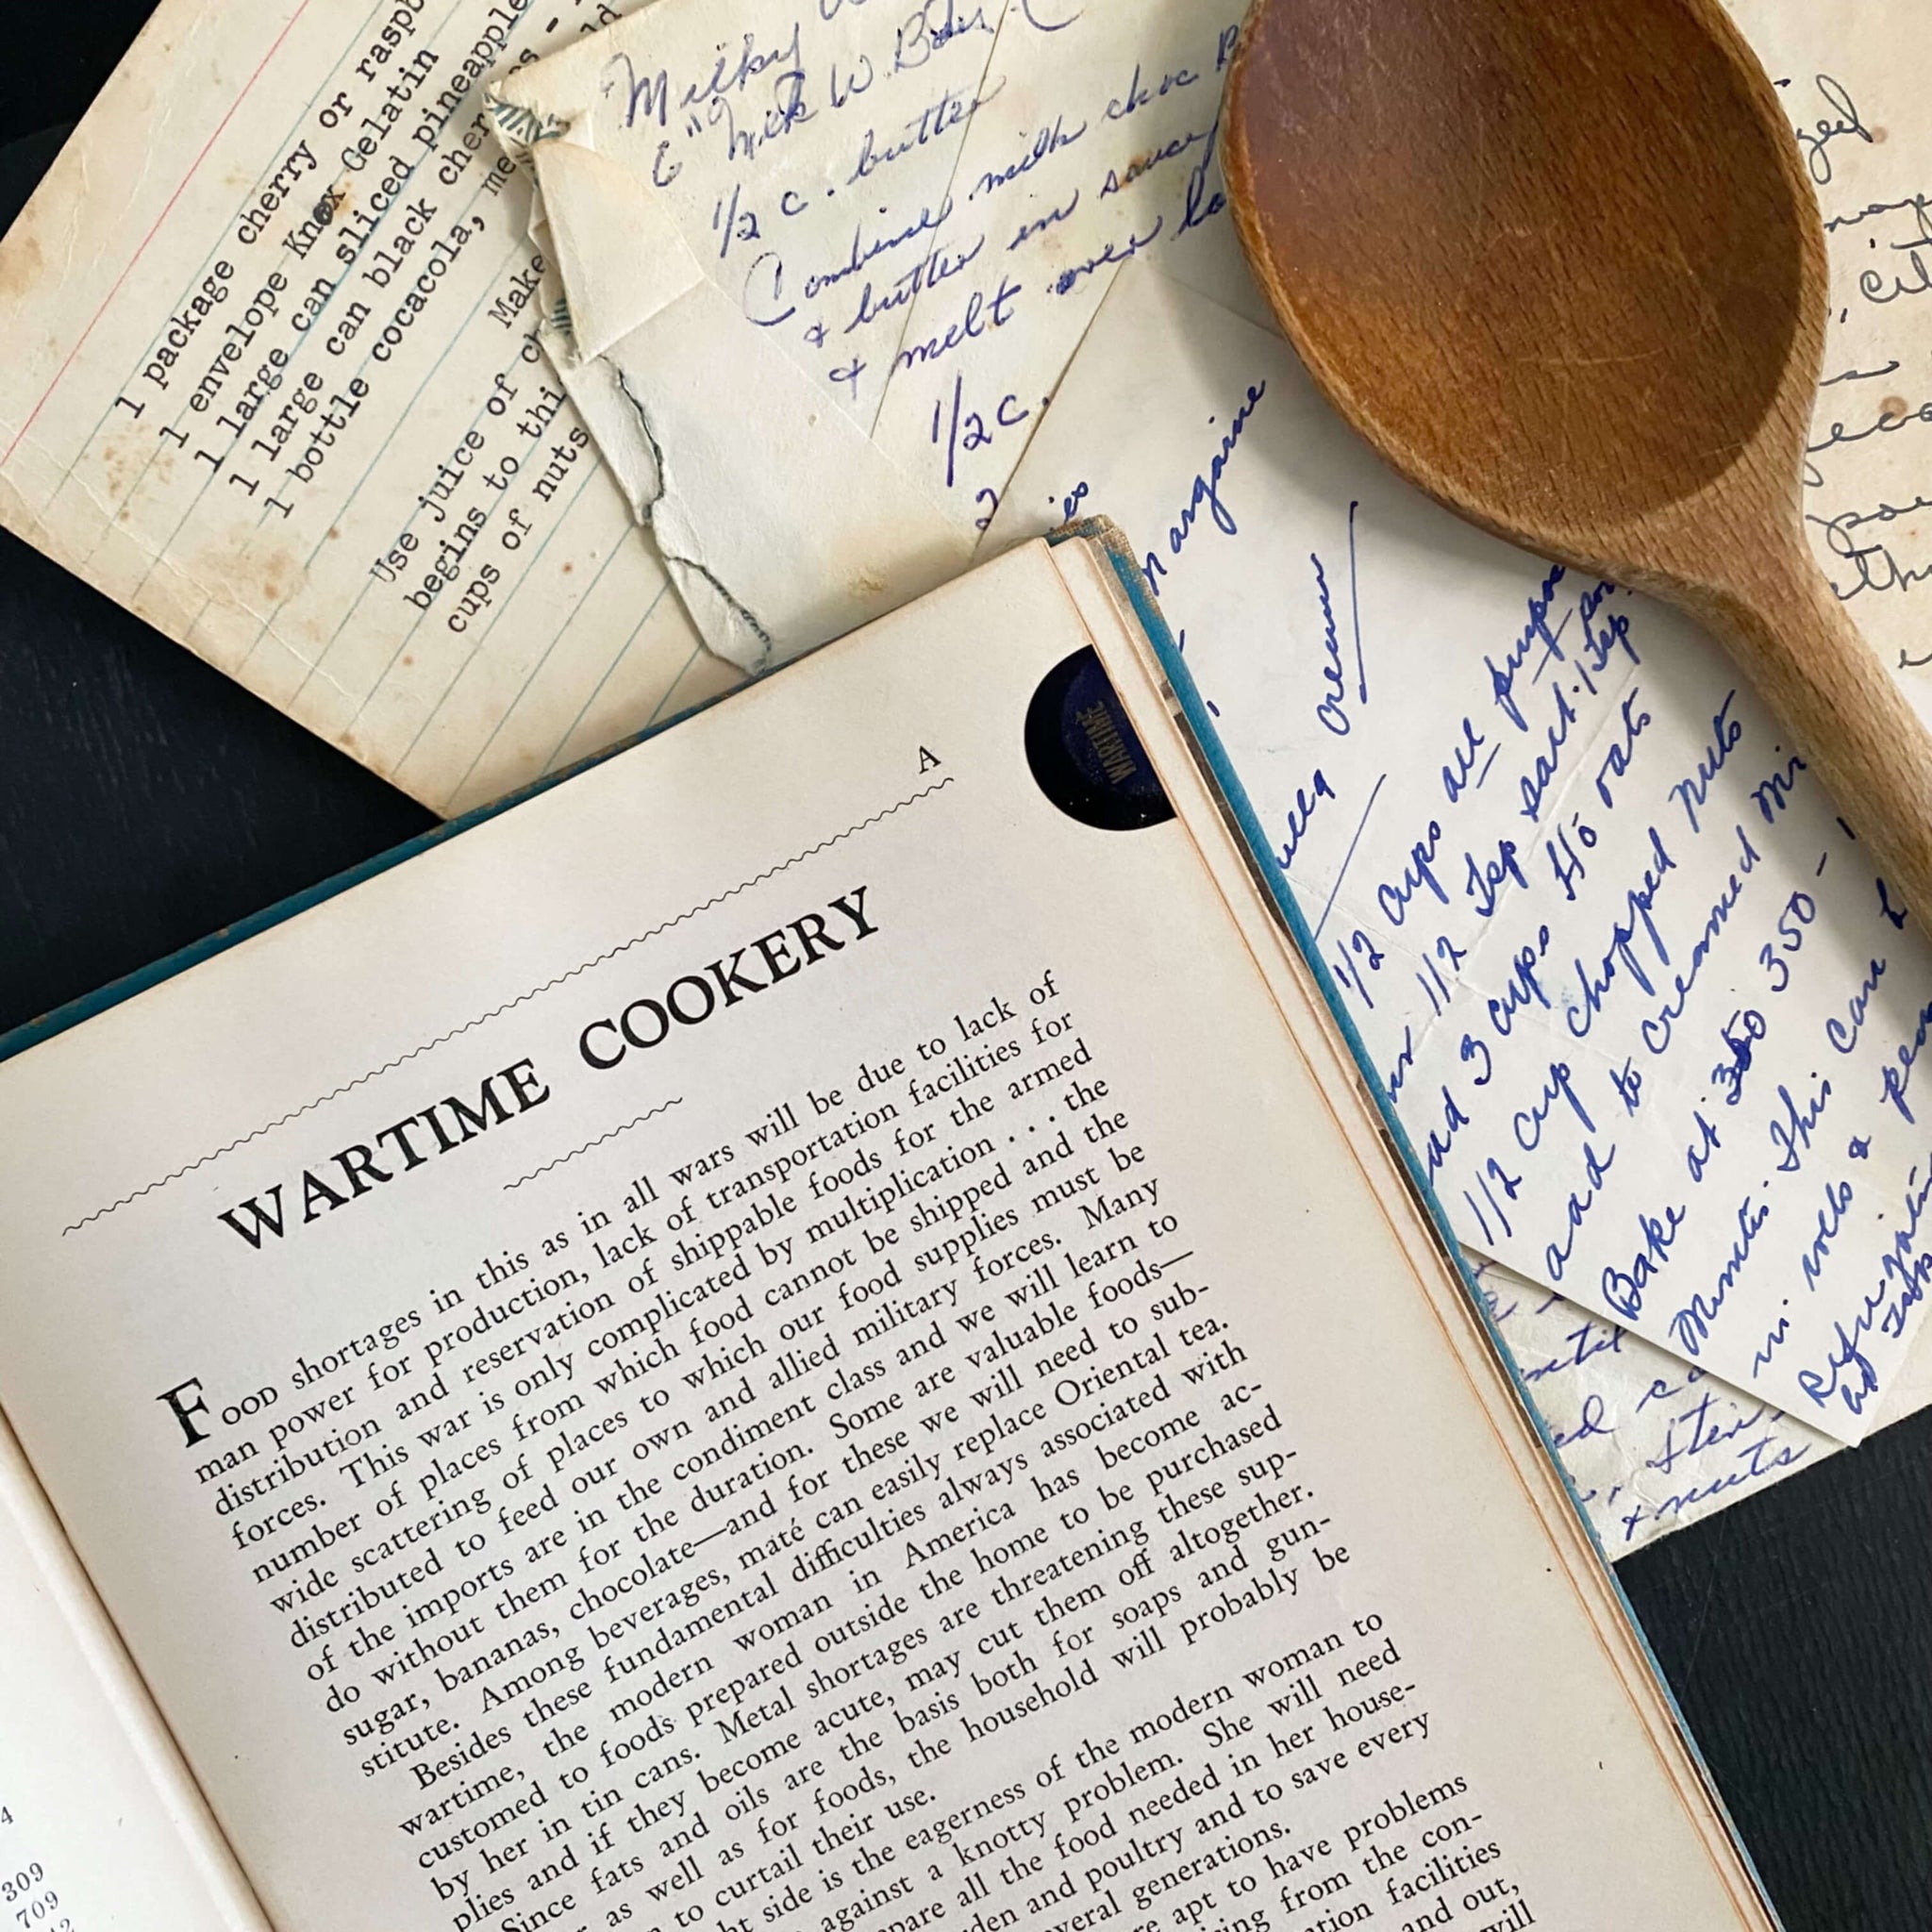 1 package cherry or raspb
1 envelope Knox Gelatin
1 large can sliced pineapple
1 large can black cher
1 bottle cocacola,
Make
Use juice of ch
begins to thi
cups of nuts
Milky
6 "Milk W. Bar
1/2 c. butter
Combine milk choc
& butter in sauce
& melt over lo
1/2 c.
2
margarine
cream
1/2 cups all purpos
1/2 tsp salt 1 tsp
3 cups H-O oats
1/2 cup chopped nuts
add to creamed mi
Bake at 350 350 -
Minutes. This can b
in rolls &
& nuts
A
WARTIME
WARTIME COOKERY
FOOD shortages in this as in all wars will be due to lack of
man power for production, lack of transportation facilities for
distribution and reservation of shippable foods for the armed
forces. This war is only complicated by multiplication . . . the
number of places from which food cannot be shipped and the
wide scattering of places to which our food supplies must be
distributed to feed our own and allied military forces. Many
of the imports are in the condiment class and we will learn to
do without them for the duration. Some are valuable foods—
sugar, bananas, chocolate—and for these we will need to sub-
stitute. Among beverages, maté can easily replace Oriental tea.
Besides these fundamental difficulties always associated with
wartime, the modern woman in America has become ac-
customed to foods prepared outside the home to be purchased
by her in tin cans. Metal shortages are threatening these sup-
plies and if they become acute, may cut them off altogether.
Since fats and oils are the basis both for soaps and gun-
as well as for foods, the household will probably be
to curtail their use.
ht side is the eagerness of the modern woman to
against a knotty problem. She will need
pare all the food needed in her house-
den and poultry and to save every
veral generations.
re apt to have problems
ing from the con-
ation facilities
and out,
will
4
309
709